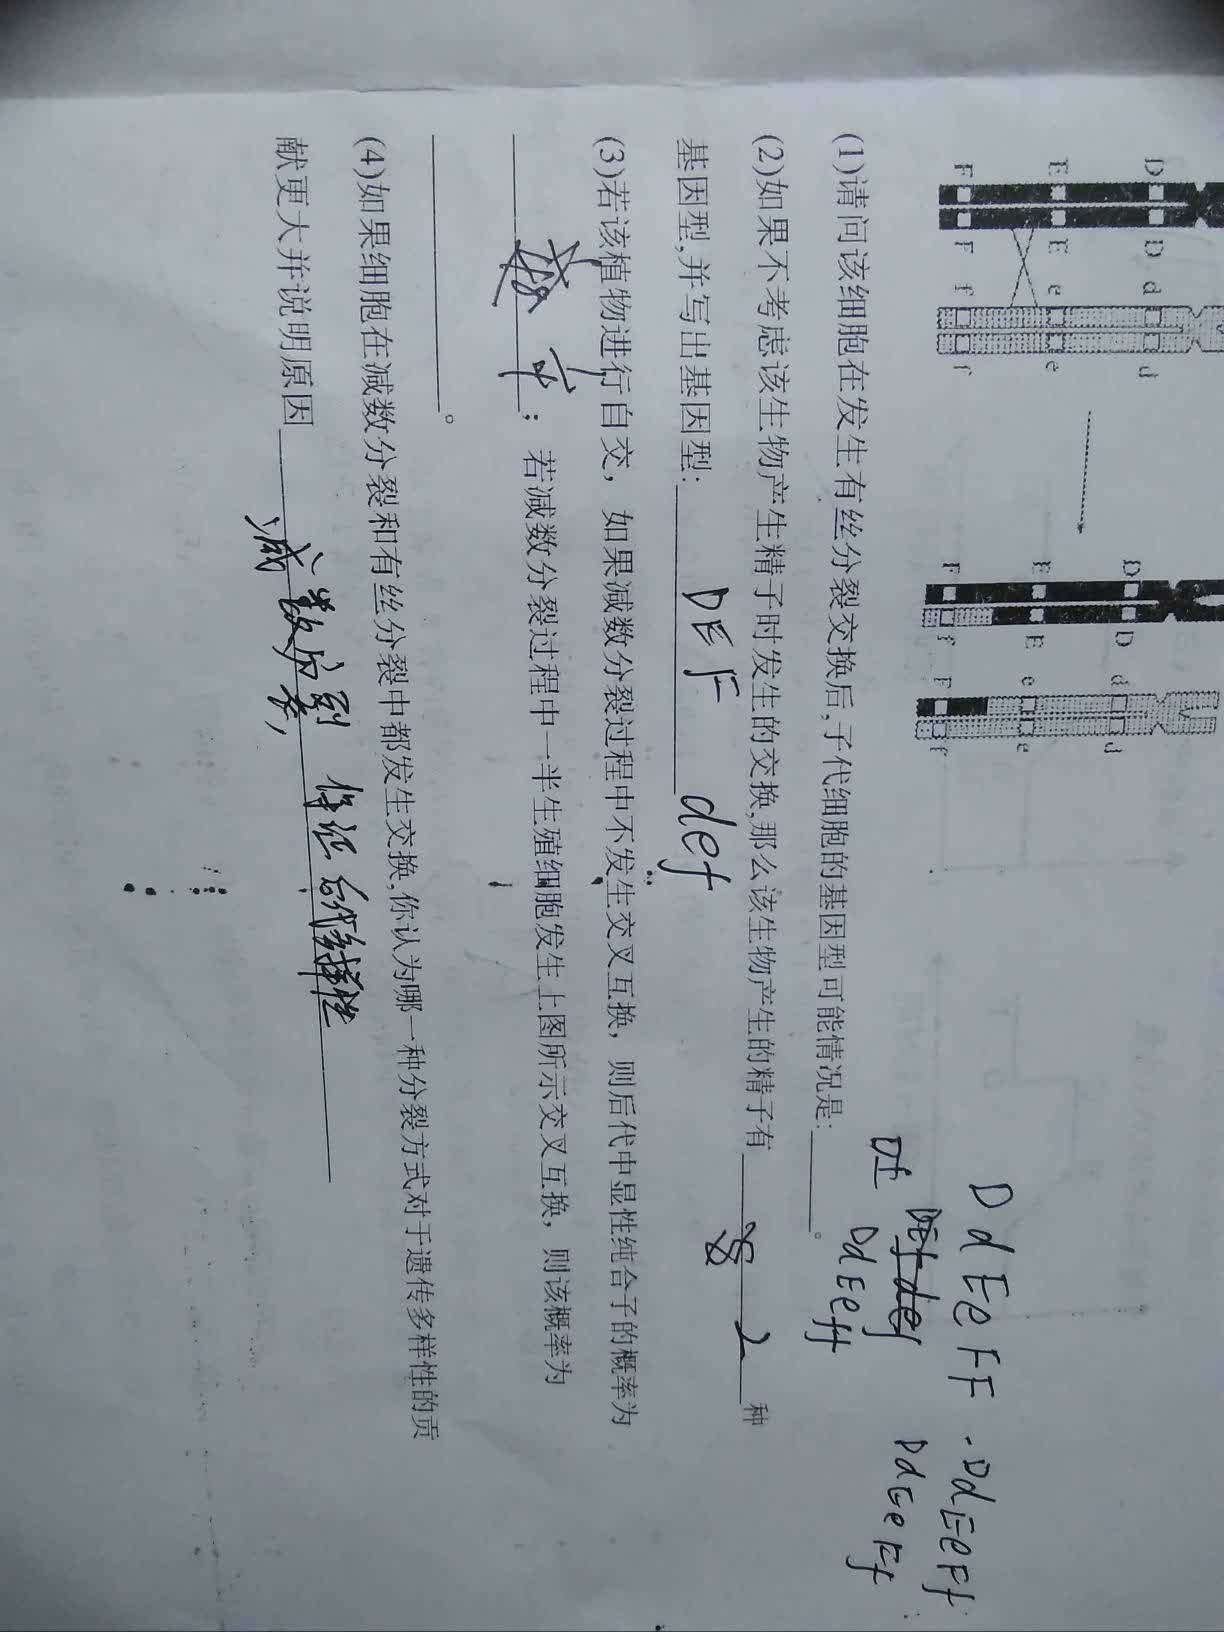 D D d d
E E e e
F F f f
D D d d
E E e e
F f F f
(1)请问该细胞在发生有丝分裂交换后,子代细胞的基因型可能情况是:______。
DdEeFF · DdEeFf
DdEeff DdEeFf
(2)如果不考虑该生物产生精子时发生的交换,那么该生物产生的精子有 2 种
基因型,并写出基因型: DEF def
(3)若该植物进行自交，如果减数分裂过程中不发生交叉互换，则后代中显性纯合子的概率为
______；若减数分裂过程中一半生殖细胞发生上图所示交叉互换，则该概率为
______。
(4)如果细胞在减数分裂和有丝分裂中都发生交换,你认为哪一种分裂方式对于遗传多样性的贡
献更大并说明原因 减数分裂, 保证后代多样性